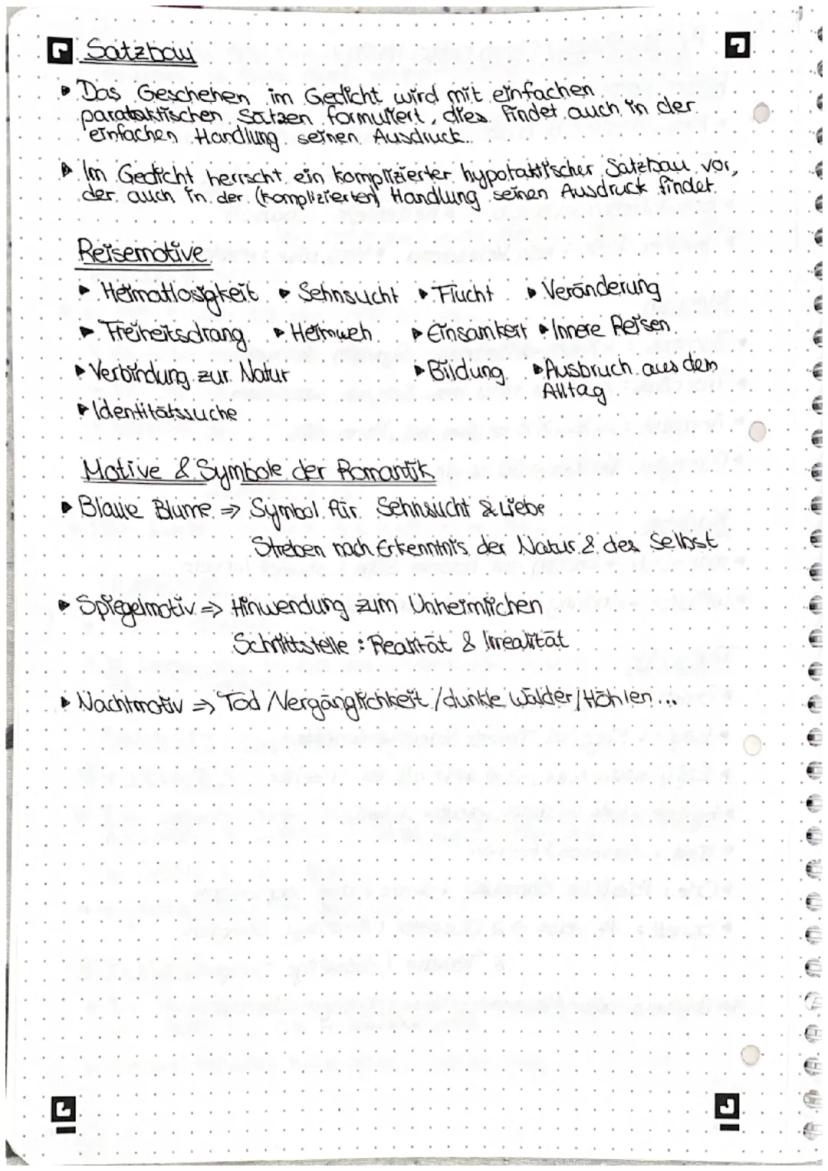 Satzbau
▸ Das Geschehen im Gedicht wird mit einfachen
parataktischen Sätzen formuliert, dies findet auch in der
einfachen Handlung seinen Ausdruck.
▸ Im Gedicht herrscht ein komplizierter hypotaktischer Satzbau vor,
der auch in der (komplizierten) Handlung seinen Ausdruck findet.
Reisemotive
▸ Heimatlosigkeit ▸ Sehnsucht ▸ Flucht ▸ Veränderung
▸ Freiheitsdrang ▸ Heimweh ▸ Einsamkeit ▸ Innere Reisen
▸ Verbindung zur Natur ▸ Bildung ▸ Ausbruch aus dem
Alltag
▸ Identitätssuche
Motive & Symbole der Romantik
▸ Blaue Blume ⇒ Symbol für Sehnsucht & Liebe
Streben nach Erkenntnis der Natur & des Selbst
▸ Spiegelmotiv ⇒ Hinwendung zum Unheimlichen
Schnittstelle : Realität & Irrealität
▸ Nachtmotiv ⇒ Tod / Vergänglichkeit / dunkle Wälder / Höhlen...